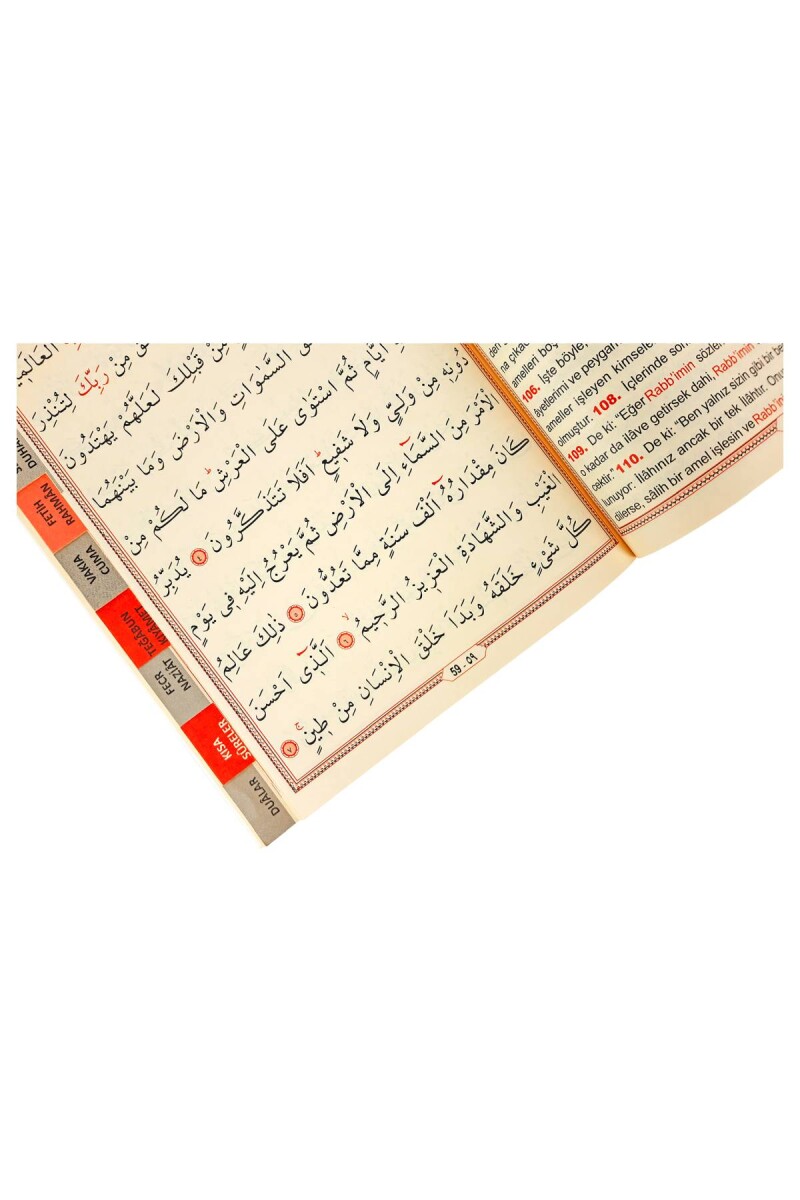 مِنْ رَبِّكَ لِتُنْذِرَ
مِنْ قَبْلِكَ لَعَلَّهُمْ يَهْتَدُونَ
السَّمٰوَاتِ وَالْاَرْضَ وَمَا بَيْنَهُمَا
اَيَّامٍ ثُمَّ اسْتَوٰى عَلَى الْعَرْشِۜ مَا لَكُمْ مِنْ
دُونِه۪ مِنْ وَلِيٍّ وَلَا شَف۪يعٍۜ اَفَلَا تَتَذَكَّرُونَ ٤ يُدَبِّرُ
الْاَمْرَ مِنَ السَّمَٓاءِ اِلَى الْاَرْضِ ثُمَّ يَعْرُجُ اِلَيْهِ ف۪ي يَوْمٍ
كَانَ مِقْدَارُهُٓ اَلْفَ سَنَةٍ مِمَّا تَعُدُّونَ ٥ ذٰلِكَ عَالِمُ
الْغَيْبِ وَالشَّهَادَةِ الْعَز۪يزُ الرَّح۪يمُۙ ٦ اَلَّذ۪ٓي اَحْسَنَ
كُلَّ شَيْءٍ خَلَقَهُ وَبَدَاَ خَلْقَ الْاِنْسَانِ مِنْ ط۪ينٍۚ ٧
59 - ٥٩
na çıkac
amelleri boş
106. İşte böyle,
âyetlerimi ve peygam
ameller işleyen kimsele
olmuştur. 108. İçlerinde son
109. De ki: "Eğer Rabb'imin sözler
o kadar da ilâve getirsek dahi, Rabb'imin
cektir." 110. De ki: "Ben yalnız sizin gibi bir be
lunuyor. İlâhınız ancak bir tek ilâhtır. Onu
dilerse, sâlih bir amel işlesin ve Rabb'in
DUHÂ
FETİH
RAHMÂN
VAKIA
CUMA
TEGÂBUN
KIYÂMET
FECR
NAZİÂT
KISA
SÛRELER
DUÂLAR